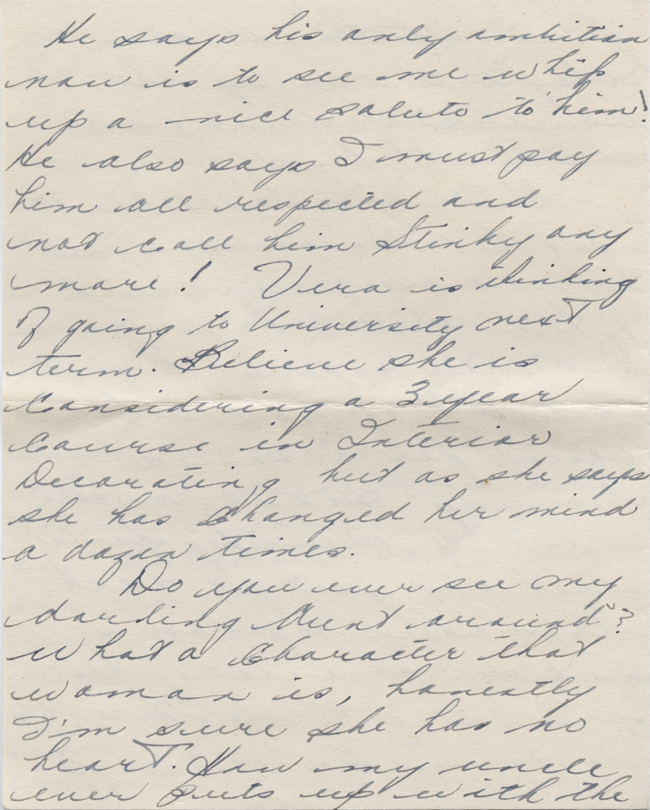 He says his only ambition
now is to see me whip
up a nice salute to him!
He also says I must pay
him all respected and
not call him Stinky any
more! Vera is thinking
of going to University next
term. Believe she is
considering a 3 year
course in Interior
Decorating but as she says
she has changed her mind
a dozen times.
Do you ever see my
darling Aunt around?
What a character that
woman is, honestly
I'm sure she has no
heart. How my uncle
ever puts up with the